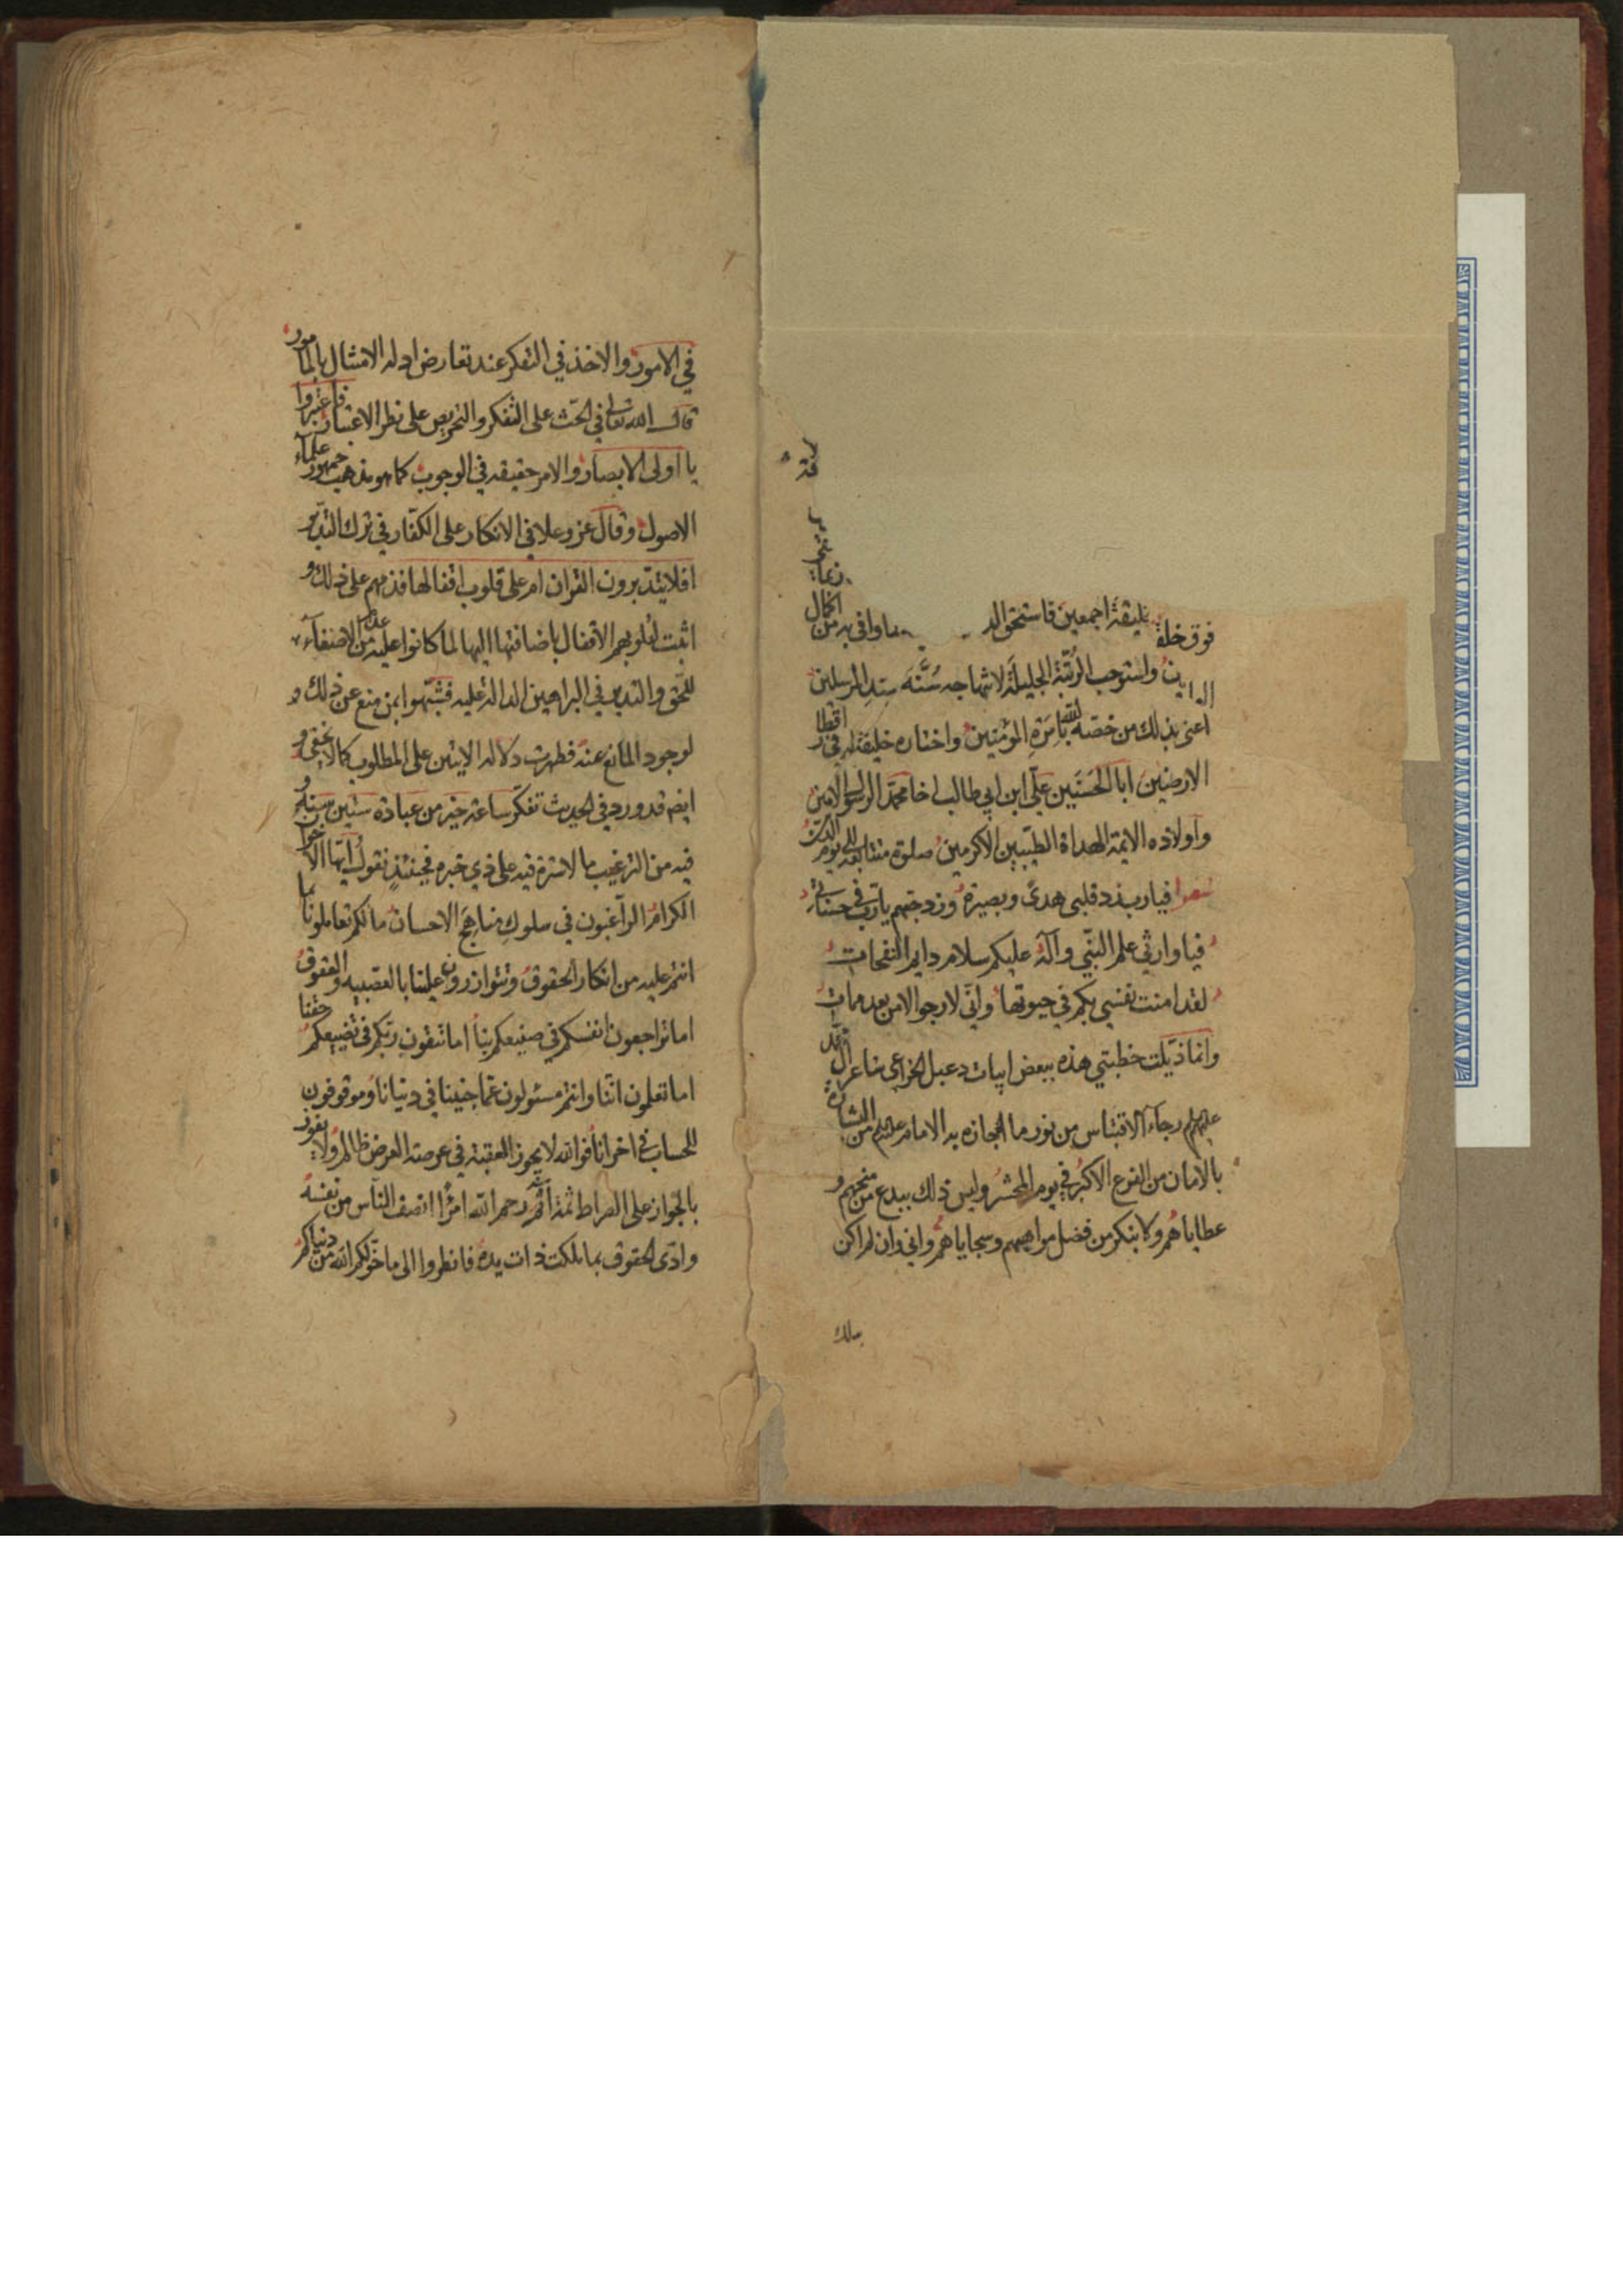 فوق خليقته اجمعين فاستحق الد وافي به من اكمال
ين واستوجب الرتبة الجليلة لانتهاجه سنة سيد المرسلين
اعنى بذلك من خصه الله بامرة المؤمنين واختاره خليفة له في اقطار
الارضين ابا الحسنين علي ابن ابي طالب اخا محمد الرسول الامين
واولاده الائمة الهداة الطيبين الاكرمين صلوة متتابعة الى يوم الدين
شعر فيا رب زد قلبى هدى وبصيرة وزد حبهم يا رب في حسناتي
فيا وارثي علم النبي وآله عليكم سلام دايم النفحات
لقد امنت نفسي بكم في حيوتها واني لارجو الامن بعد ممات
وانما ذيلت خطبتي هذه ببعض ابيات دعبل الخزاعى شاعر آل محمد
عليهم رجاء الاقتباس من نور ما اجازه به الامام عليه السلام من البشارة
بالامان من الفزع الاكبر في يوم المحشر وليس ذلك ببدع من منحهم و
عطاياهم ولا بنكر من فضل مواهبهم وسجاياهم واني وان لم اكن
في الامور والاخذ في التفكر عند تعارض ادله الامتثال بالمامور
قال الله تعالى في الحث على التفكر والتحريص على نظر الاعتبار فاعتبروا
يا اولى الابصار والامر حقيقه في الوجوب كما هو مذهب جمهور علماء
الاصول وقال عز وعلا في الانكار على الكفار في ترك التدبر
افلا يتدبرون القران ام على قلوب اقفالها فذمهم على ذلك و
اثبت لقلوبهم الاقفال باضافتها اليها لما كانوا عليه من عدم الاصغاء
للحق والتدبر في البراهين الدالة عليه فشبهوا بمن منع عن ذلك و
لوجود المانع عنه فظهرت دلاله الايتين على المطلوب كما لا يخفى و
ايضا قد ورد في الحديث تفكر ساعة خير من عبادة ستين سنة و
فيه من الترغيب ما لا سترة فيه على ذي خبره فحينئذ نقول ايها الاخوان
الكرام الراغبون في سلوك مناهج الاحسان ما لكم تعاملونا بما
انتم عليه من انكار الحقوق وتتوازرون علينا بالعصبيه والعقوق
اما تراجعون انفسكم في صنيعكم بنا اما تتقون ربكم في تضييعكم حقنا
اما تعلمون اننا وانتم مسئولون عما جنينا في دنيانا وموقوفون
للحساب في اخرانا فوالله لا يجوز العقبة في عرصة العرض ظالم ولا يفوز
بالجواز على الصراط ثمة آثم رحم الله امرا انصف الناس من نفسه
وادى الحقوق بما ملكت ذات يده فانظروا الى ما خولكم الله من دنياكم